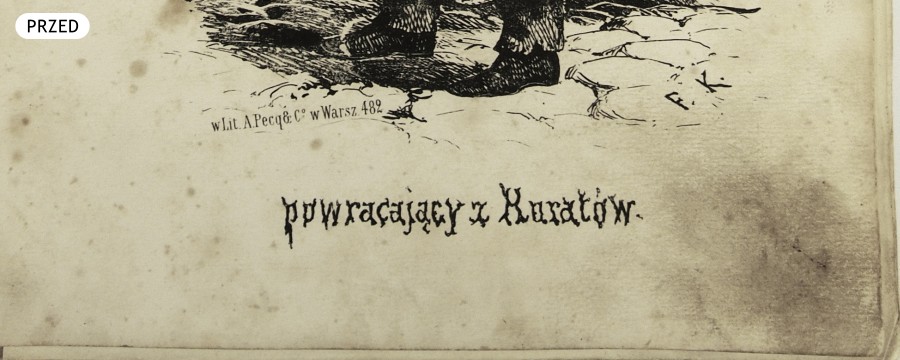 PRZED
F. K.
w Lit. A. Pecq & Cº w Warsz. 482
powracający z Kuratów.